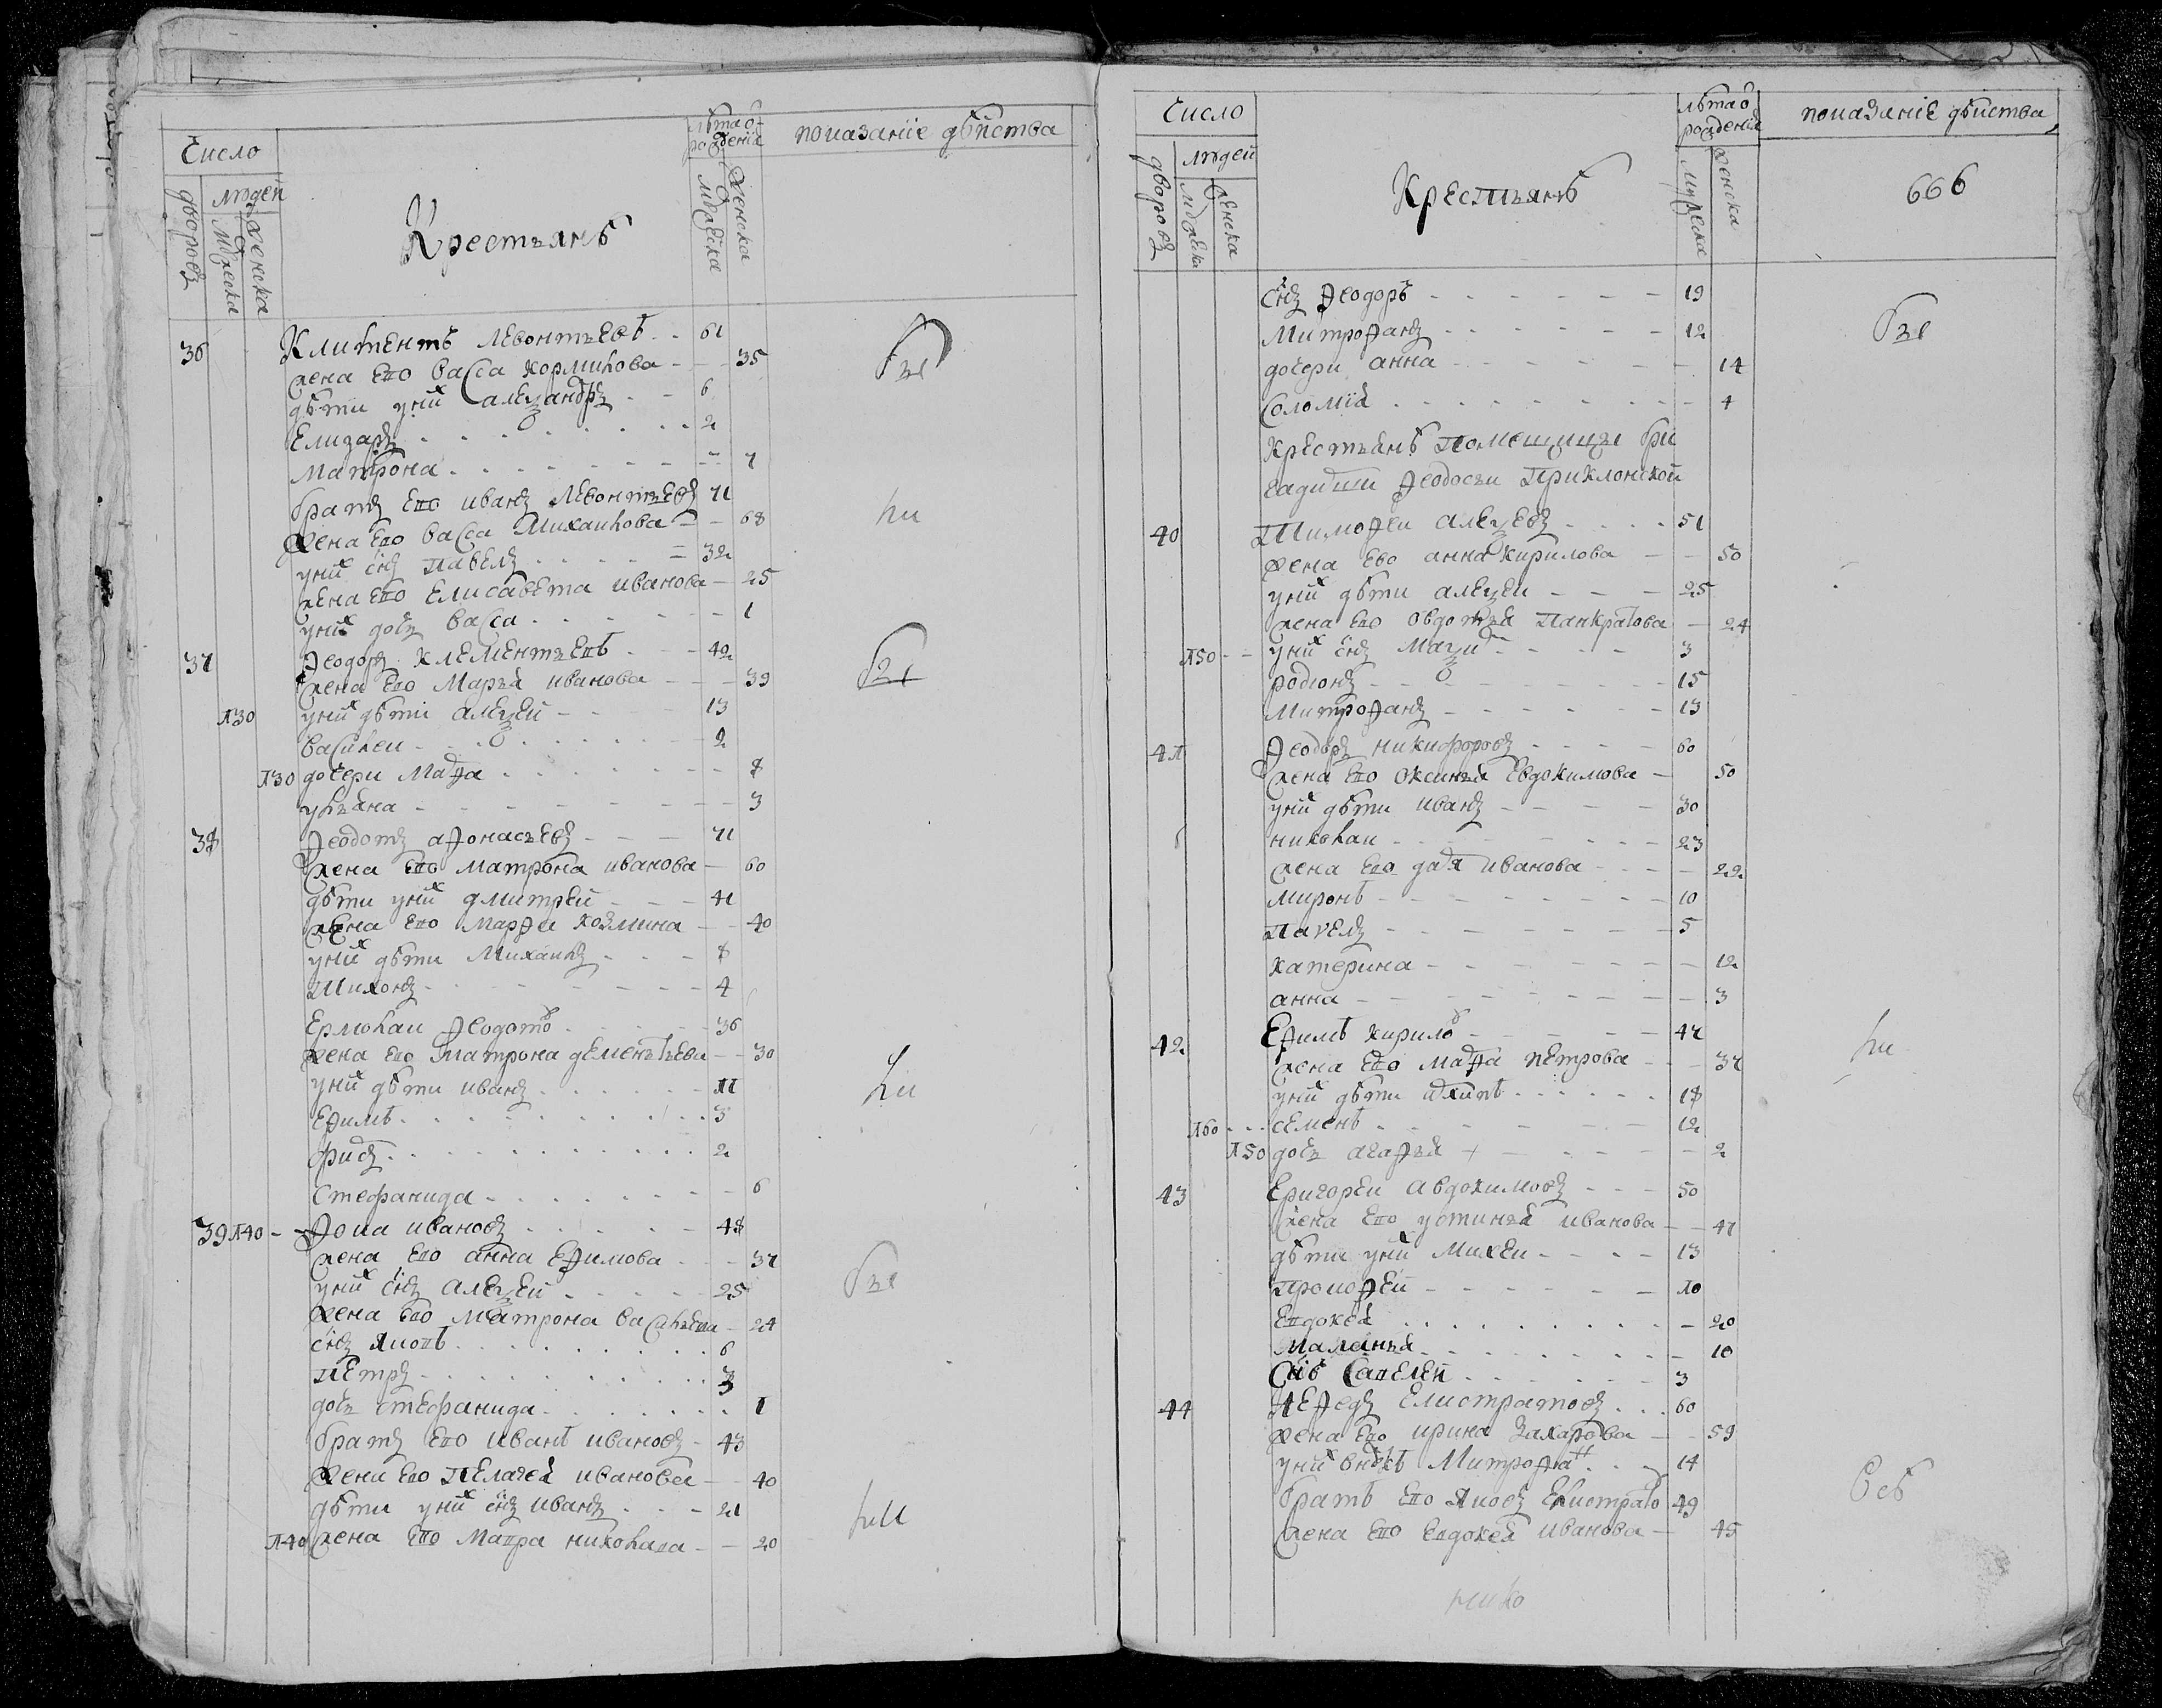 Число
дворовъ
людей
мужеска
женска
Крестьянѣ
лѣта о
рождения
мужеска
женска
показание дѣйства
36 Климентъ Левонтьевъ 61
жена ево васса кормилова 35
дѣти у них алеѯандръ 6
Елизаръ 2
матрона 7
братъ ево иванъ Левонтьевъ 71
жена ево васса михаилова 68
у них снъ павелъ 32
жена ево Елисавета иванова 25
у них дочь васса 1
37 Ѳеодоръ клементьевъ 42
жена ево марья иванова 39
130 у них дѣти алеѯей 13
василеи 2
130 дочери марѳа 8
ульяна 3
38 Ѳеодотъ аѳонасьевъ 71
жена ево матрона иванова 60
дѣти у них дмитрей 41
жена ево марѳа козмина 40
у них дѣти михаилъ 8
тихонъ 4
Ермолаи Ѳеодотовъ 36
жена ево матрона дементьева 30
у них дѣти иванъ 11
Еѳимъ 3
2
стефанида 6
39 140 Ѳома ивановъ 48
жена ево анна Еѳимова 37
у них снъ алеѯей 25
жена ево матрона васильева 24
снъ яковъ 6
петръ 3
дочь стефанида 1
братъ ево иванъ ивановъ 43
жена ево пелагея иванова 40
дѣти у них снъ иванъ 21
140 жена ево мавра николаева 20
Число
дворовъ
людей
мужеска
женска
Крестьянѣ
лѣта о
рождения
мужеска
женска
показание дѣйства
666
снъ Ѳеодоръ 19
митроѳанъ 12
дочери анна 14
соломия 4
крестьянѣ помещицы бри
гадирши Ѳеодосьи приклонской
40 Тимоѳеи алеѯеевъ 51
жена ево анна кирилова 50
у них дѣти алеѯеи 25
жена ево овдотья панкратова 24
150 у них снъ маѯим 3
родионъ 15
митроѳанъ 13
41 Ѳеодоръ никифоровъ 60
жена ево оксинья Евдокимова 50
у них дѣти иванъ 30
николаи 23
жена ево дарья иванова 22
миронъ 10
павелъ 5
катерина 12
анна 3
42 Еѳимъ кириловъ 47
жена ево марѳа петрова 37
у них дѣти архипъ 18
160 семенъ 12
150 дочь агаѳья 2
43 Григореи авдокимовъ 50
жена ево устинья иванова 47
дѣти у них михеи 13
ѳей 10
Евдокея 20
маланья 10
снъ савелей 3
44 неѳедъ Елистратовъ 60
жена ево ирина захарова 59
у них внукъ митроѳан 14
братъ ево яковъ Елистратов 49
жена ево Евдокея иванова 45